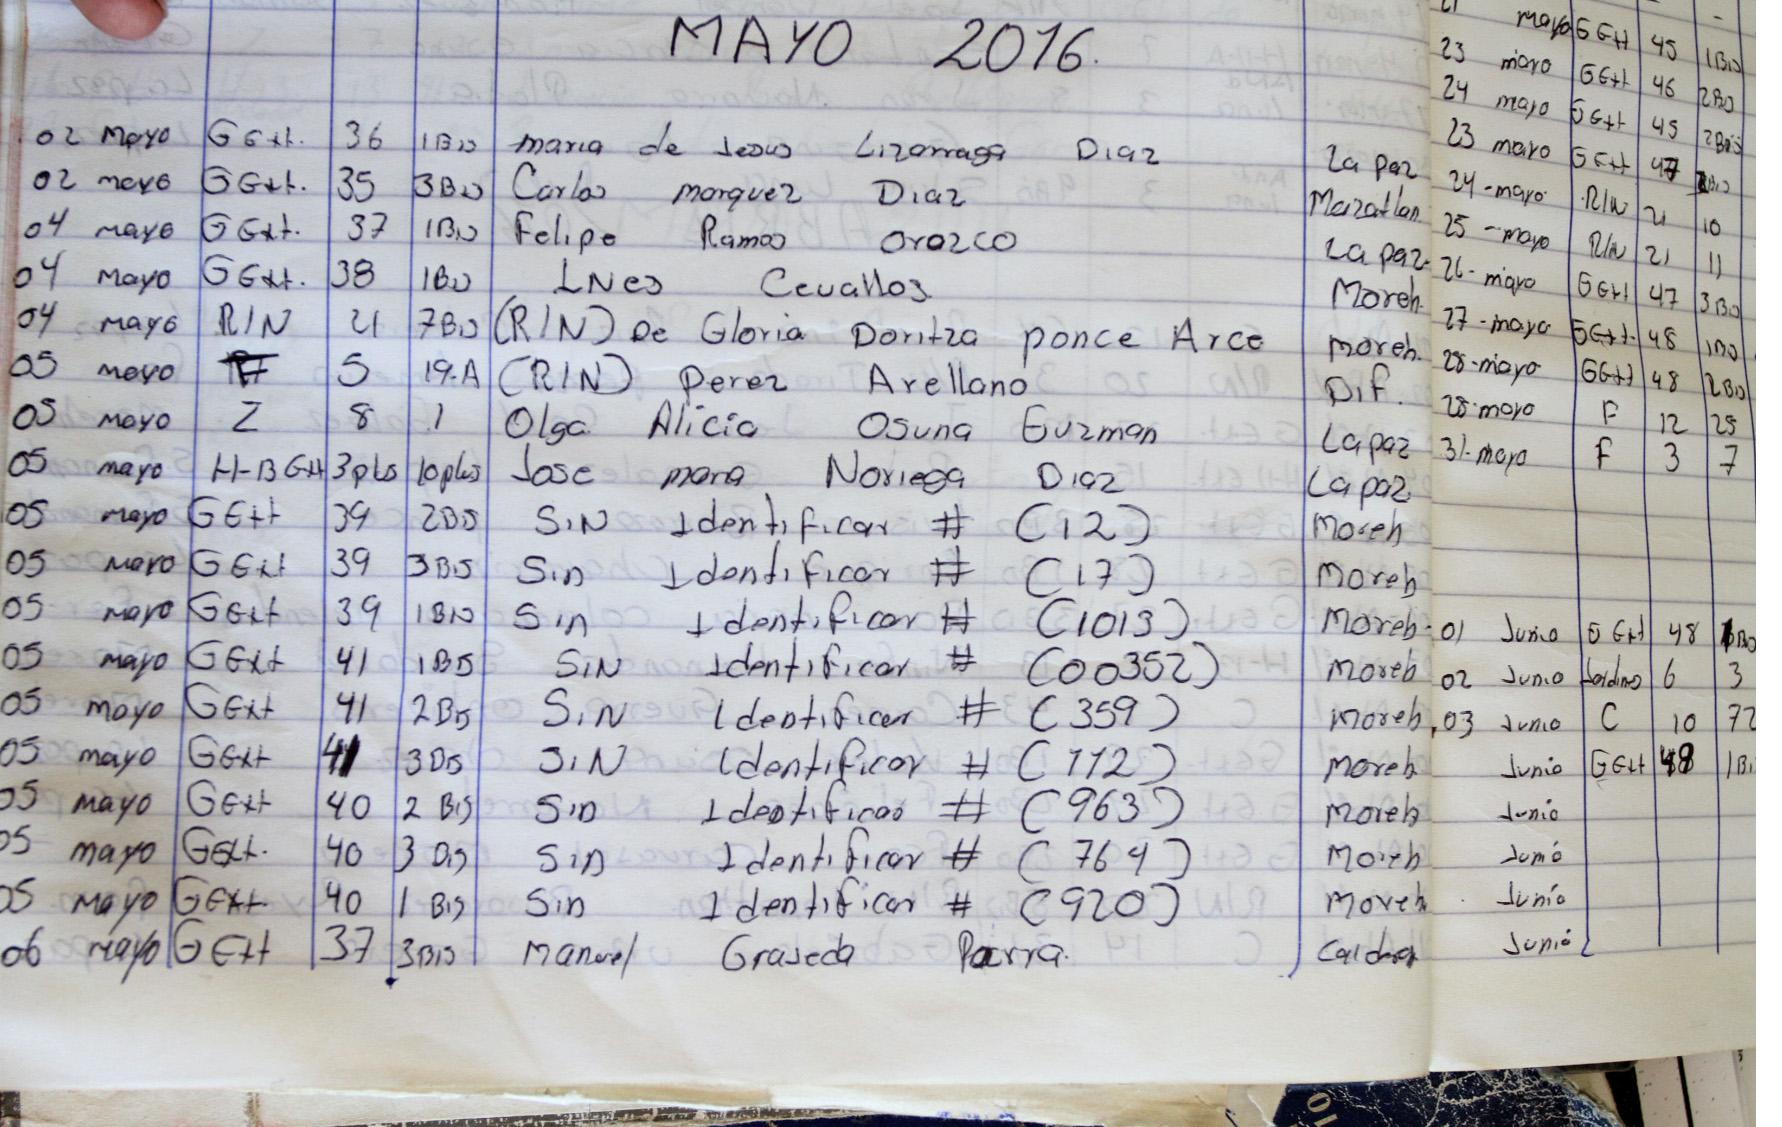 MAYO 2016.
02 Mayo GExt. 36 1Bis maria de Jesus Lizarraga Diaz La paz
02 mayo GExt. 35 3Bis Carlos marquez Diaz Mazatlan
04 mayo GExt. 37 1Bis Felipe Ramos Orozco La paz
04 mayo GExt. 38 1Bis INes Cevallos Moreh.
04 mayo R/N 21 7Bis (R/N) De Gloria Doritza ponce Arce moreh.
05 mayo 5 19-A (R/N) perez Arellano Dif.
05 mayo Z 8 1 Olga Alicia Osuna Guzman La paz
05 mayo H-BGH 3 10 Jose maria Noriega Diaz La paz
05 mayo GExt 39 2Bis SiN Identificar # (12) Moreh
05 mayo GExt 39 3Bis Sin Identificar # (17) moreh
05 mayo GExt 39 1Bis Sin Identificar # (1013) Moreb
05 mayo GExt 41 1Bis SiN Identificar # (00352) moreb
05 mayo GExt 41 2Bis SiN Identificar # (359) moreb
05 mayo GExt 41 3Bis SiN Identificar # (112) moreb
05 mayo GExt 40 2 Bis Sin Identificar # (963) moreb
05 mayo GExt. 40 3 Bis Sin Identificar # (764) Moreh
05 mayo GExt. 40 1 Bis Sin Identificar # (920) Moreh
06 mayo GExt 37 3Bis Manuel Grajeda Parra.
21 mayo GExt 45 1Bis
23 mayo GExt 46 2Bis
24 mayo GExt 45 2Bis
23 mayo GExt 47
24-mayo R/N 21 10
25-mayo R/N 21 11
26-mayo GExt 47 3Bis
27-mayo GExt. 48 1Bis
28-mayo GExt 48 2Bis
28-mayo F 12 25
31-mayo F 3 7
01 Junio GExt 48
02 Junio Jardines 6 3
03 Junio C 10 72
Junio GExt 48 1Bi
Junio
Junio
Junio
Junio